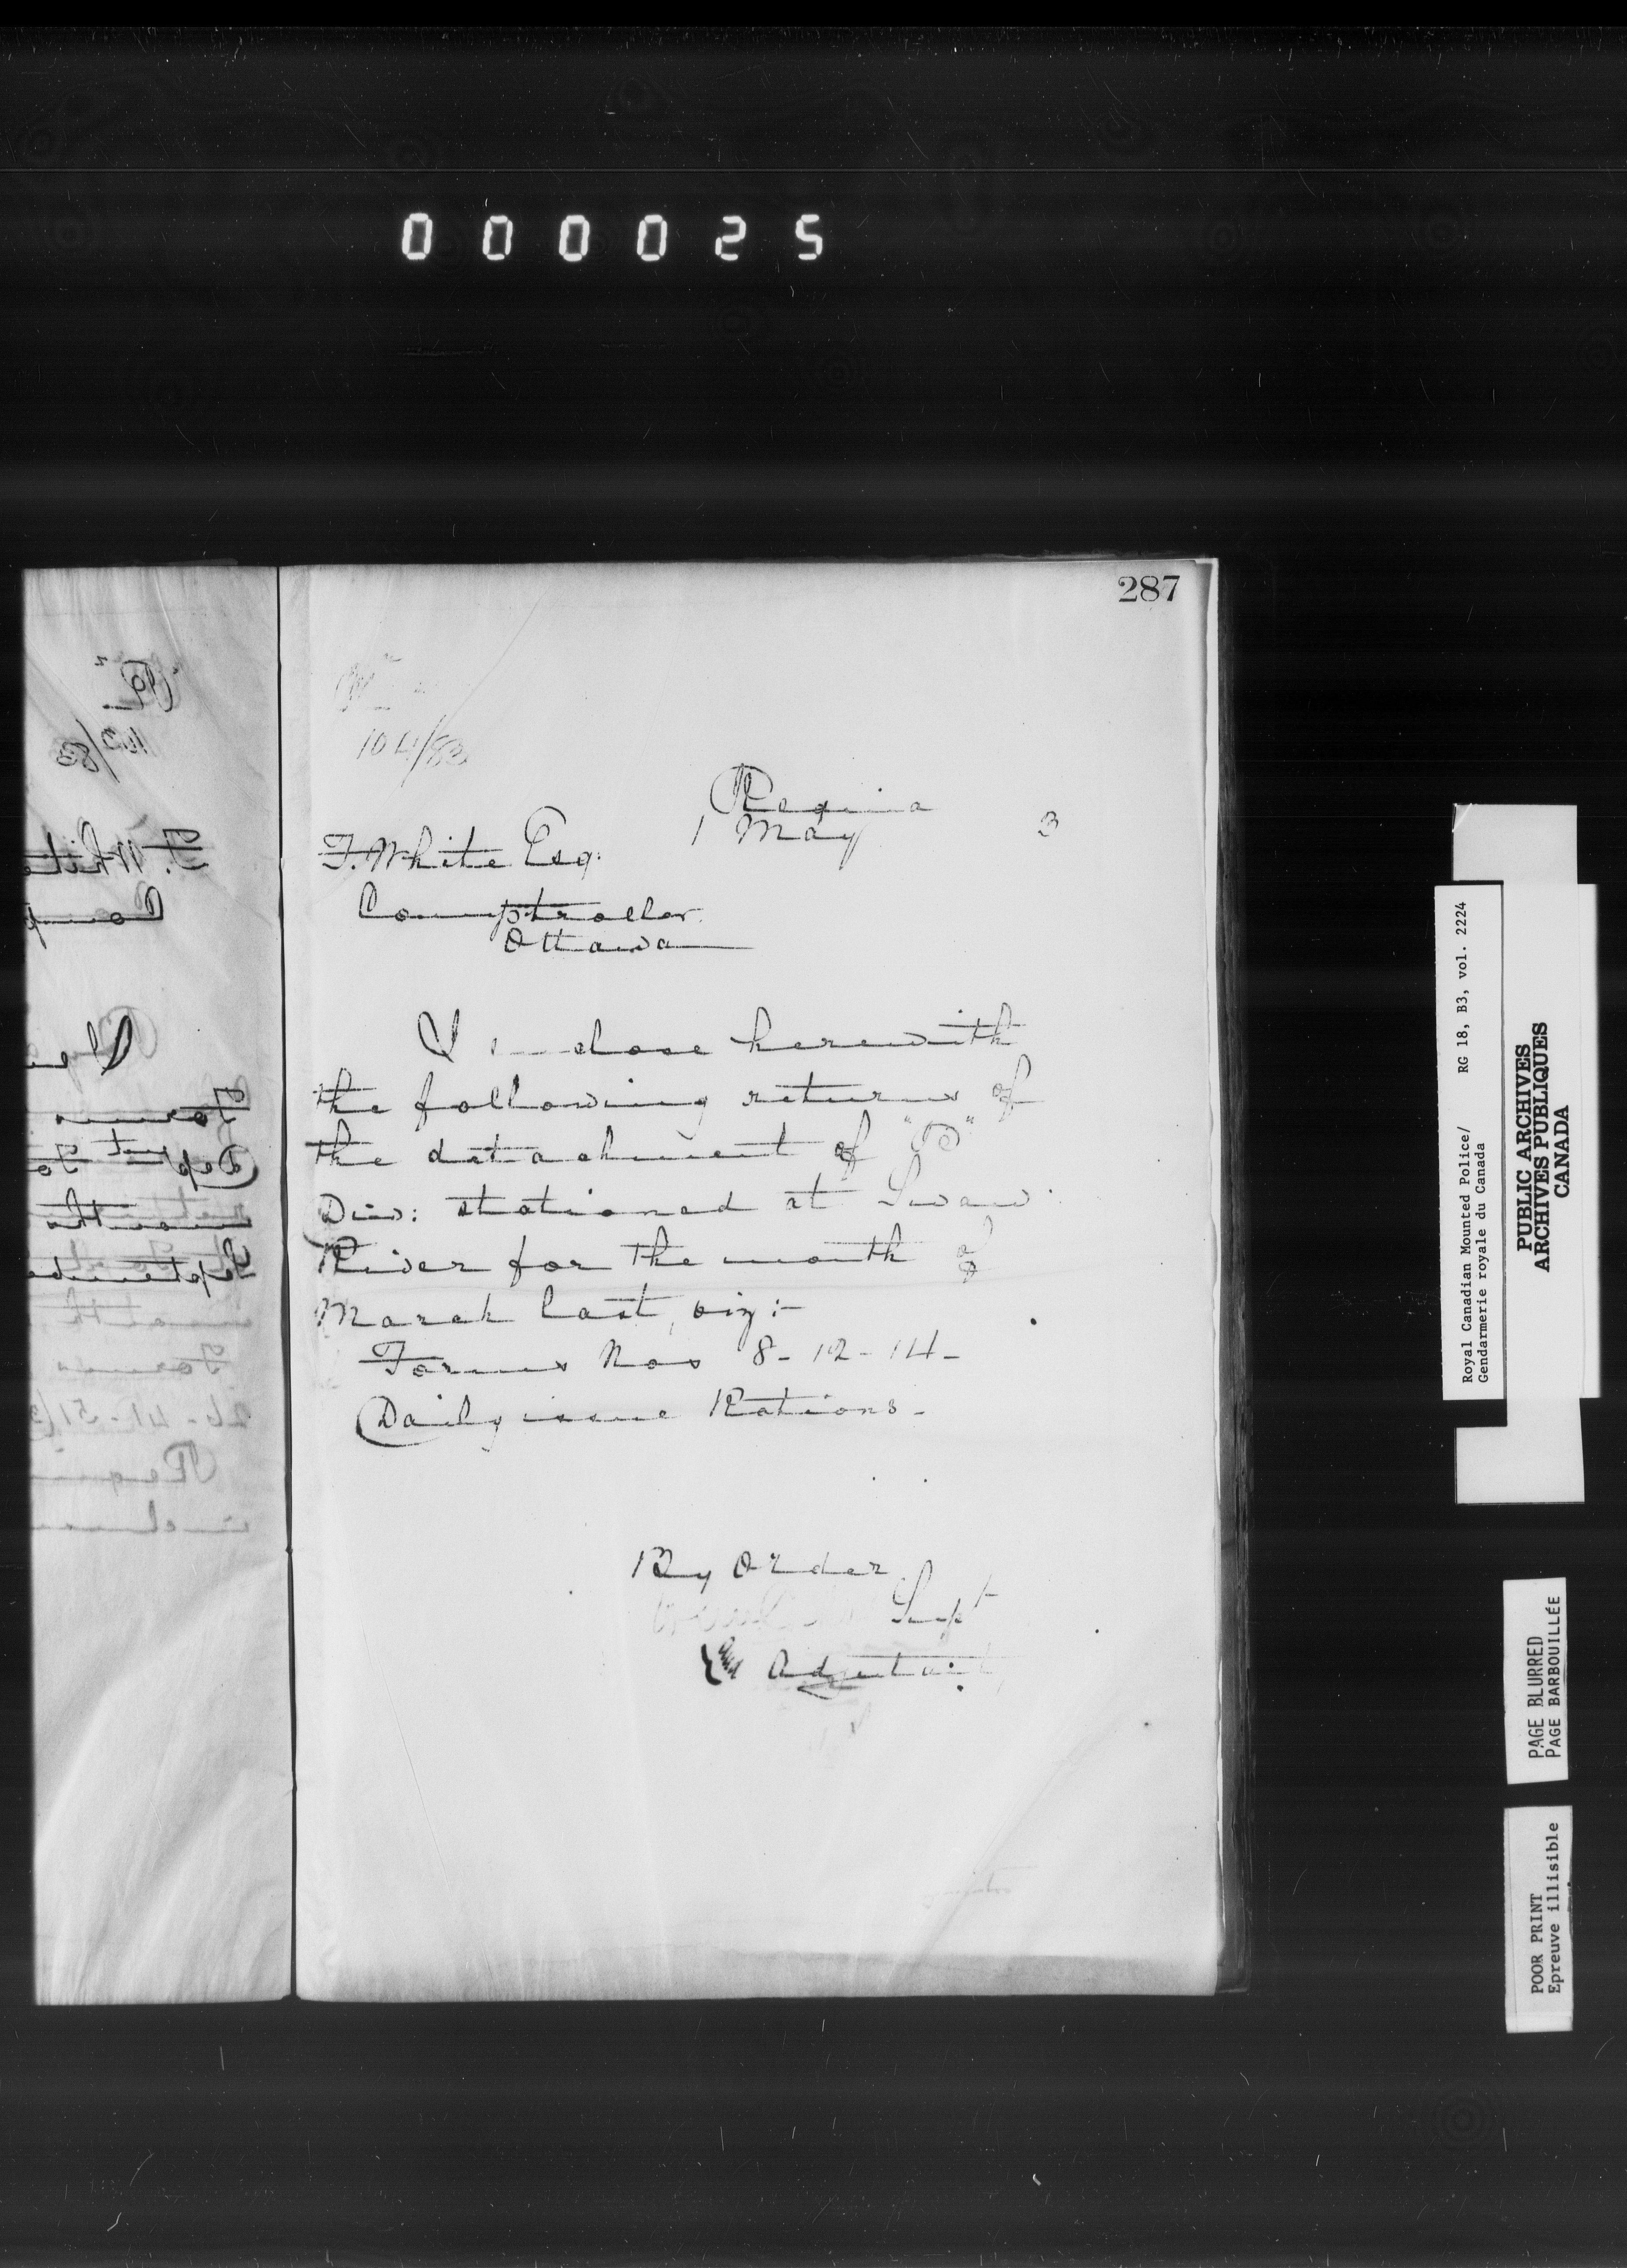 000025
287
104/83
Regina
1 May 3
F. White Esq.
Comptroller.
Ottawa
I enclose herewith
the following returns of
the detachment of "B"
Div: stationed at Swan
River for the month of
March last, viz:-
Forms Nos 8-12-14-
Daily issue Rations-
By order
Supt
Adjutant
Royal Canadian Mounted Police/ RG 18, B3, vol. 2224
Gendarmerie royale du Canada
PUBLIC ARCHIVES
ARCHIVES PUBLIQUES
CANADA
PAGE BLURRED
PAGE BARBOUILLÉE
POOR PRINT
Epreuve illisible